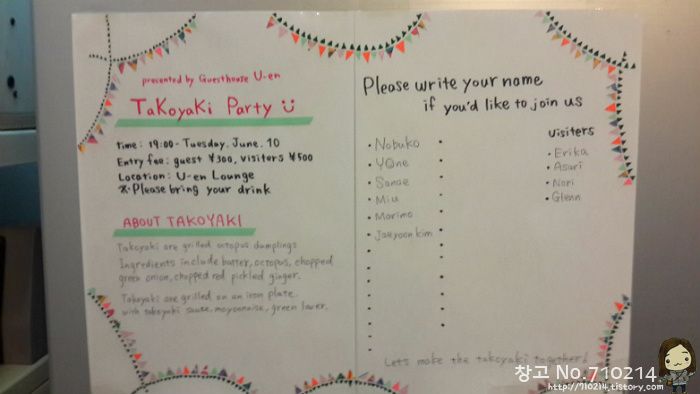 presented by Guesthouse U-en
Takoyaki Party
time: 19:00 - Tuesday, June. 10
Entry fee: guest ¥300, visiters ¥500
Location: U-en Lounge
※ Please bring your drink
ABOUT TAKOYAKI
Takoyaki are grilled octopus dumplings
Ingredients include batter, octopus, chopped
green onion, chopped red pickled ginger.
Takoyaki are grilled on an iron plate.
with takoyaki sauce, mayonnaise, green laver.
Please write your name
if you'd like to join us
• Nobuko
• Y@ne
• Sanae
• Miu
• Marimo
• Jaeyoon kim
visiters
• Erika
• Asari
• Nori
• Glenn
Let's make the takoyaki together!
창고 No.710214
http://710214.tistory.com/